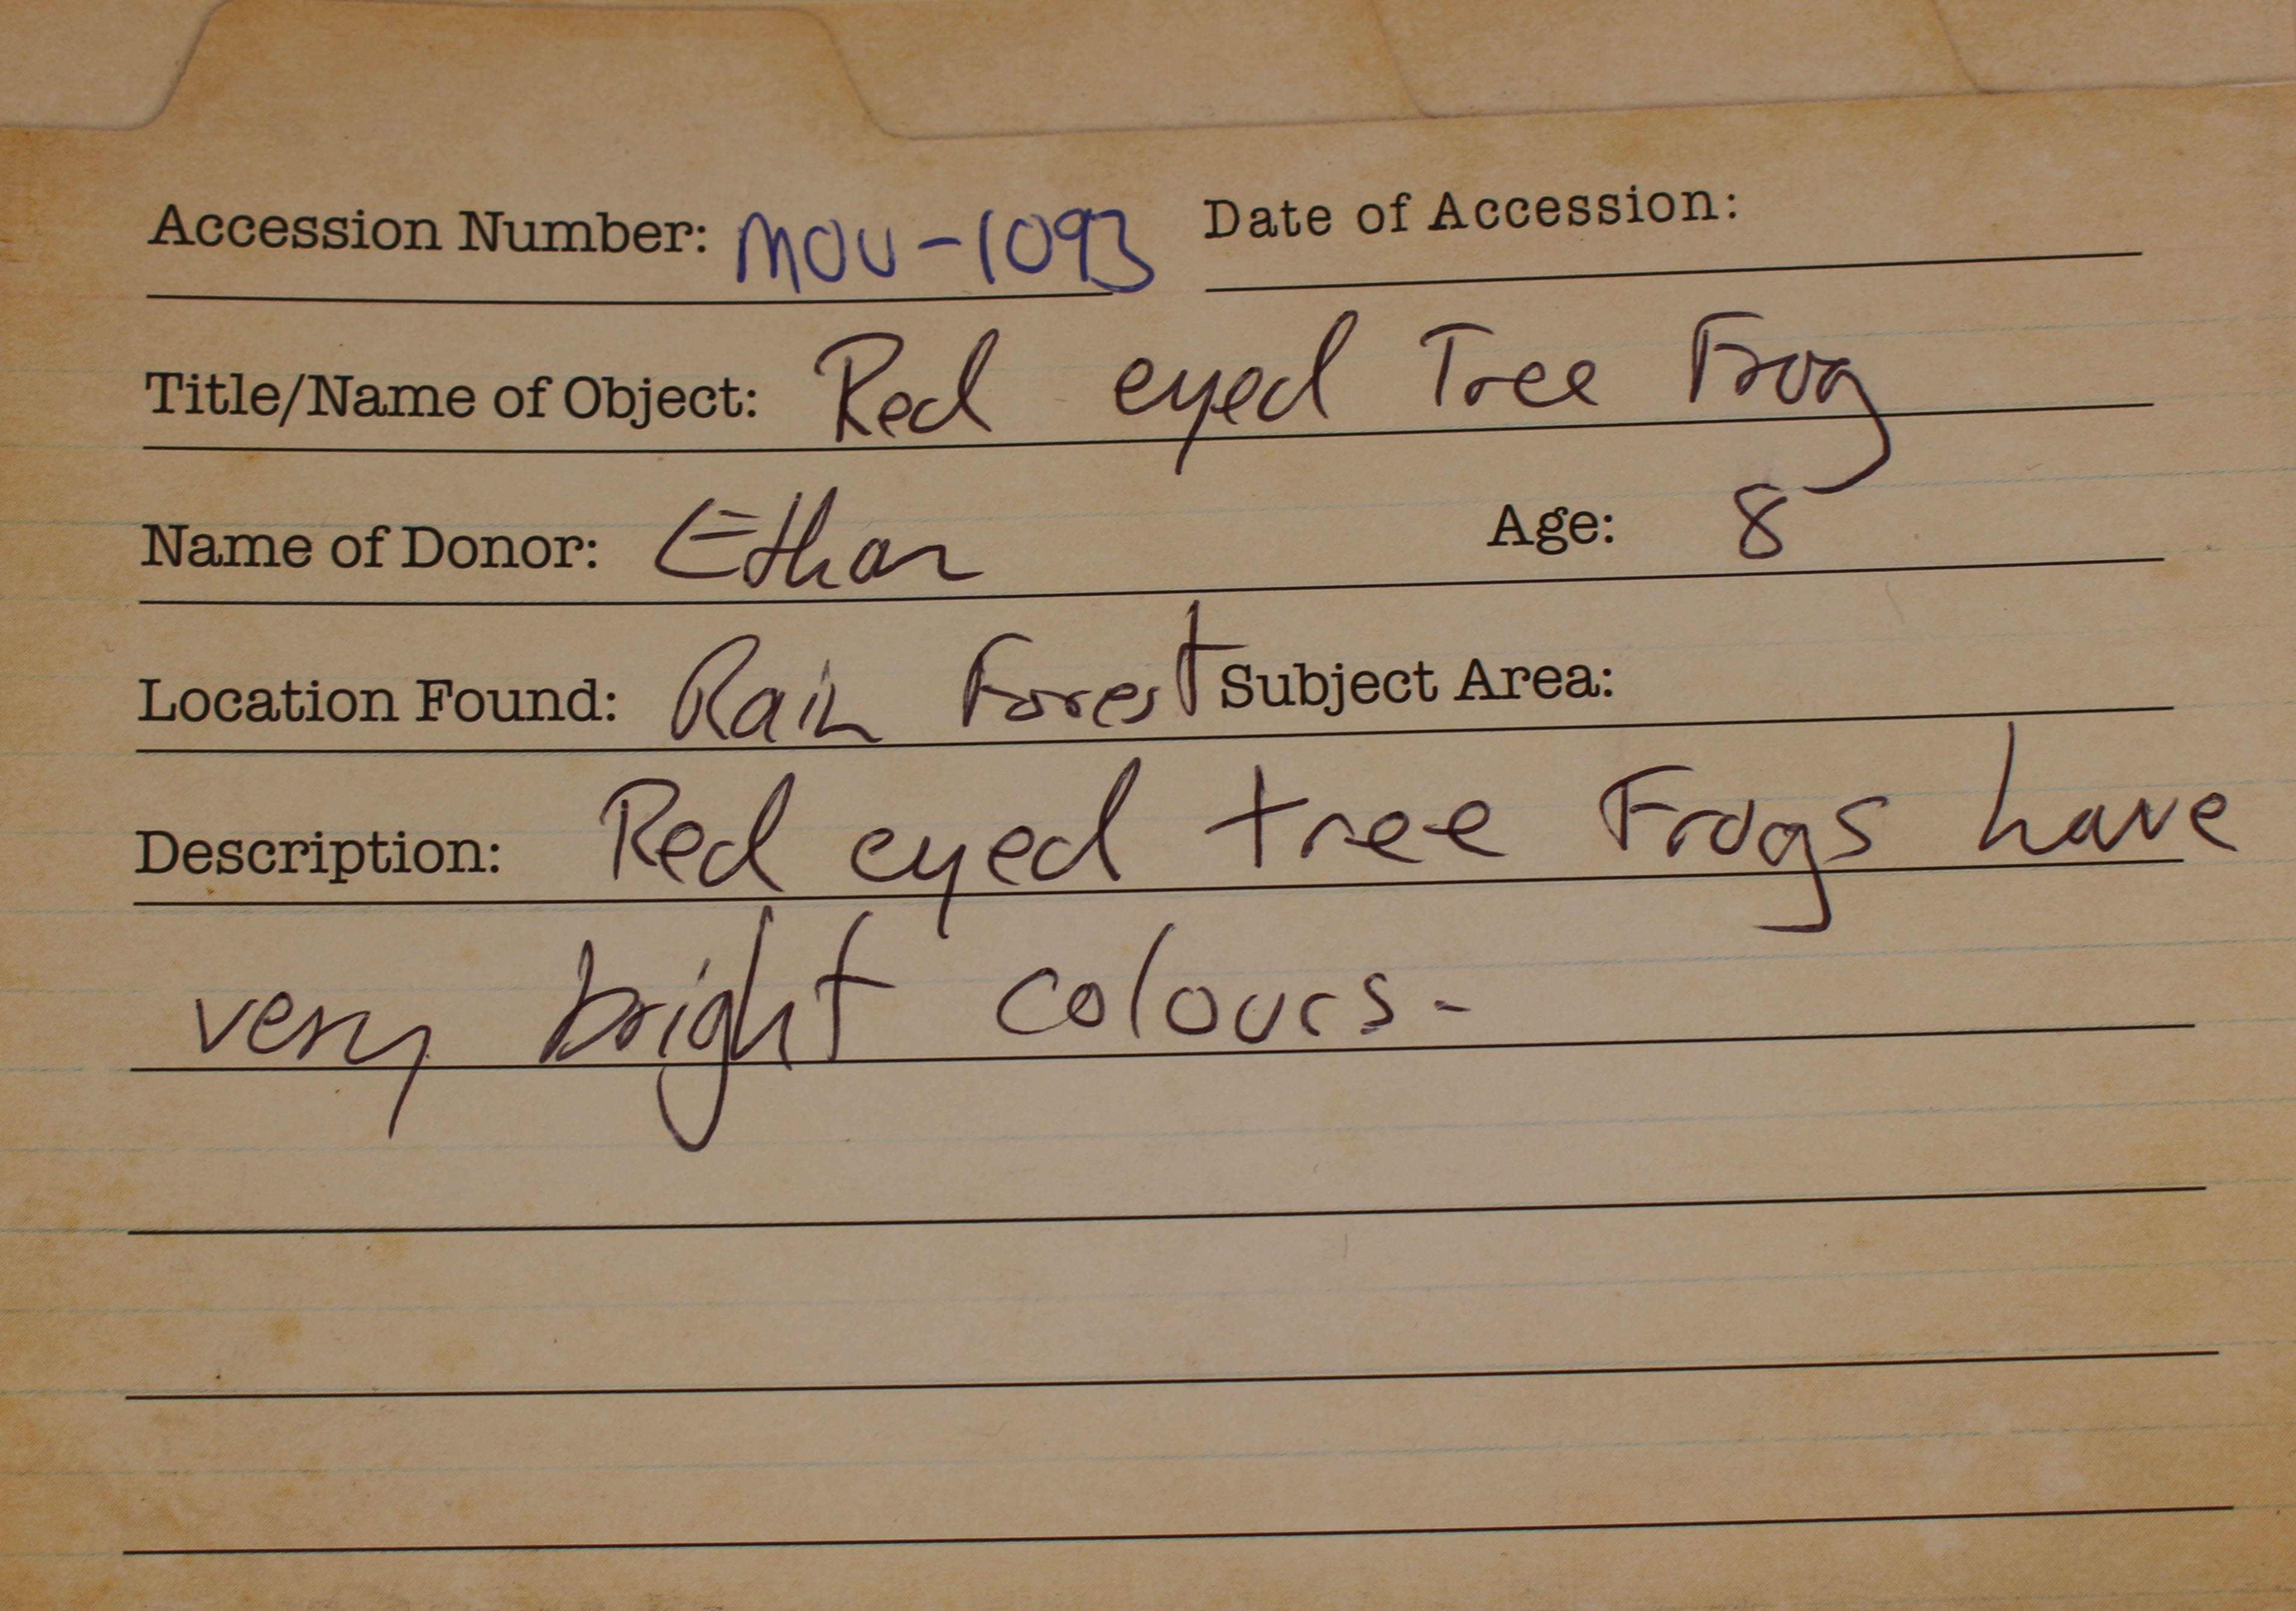 Accession Number: MOU-1093 Date of Accession:
Title/Name of Object: Red eyed Tree Frog
Name of Donor: Ethan Age: 8
Location Found: Rain Forest Subject Area:
Description: Red eyed tree Frogs have
very bright colours.